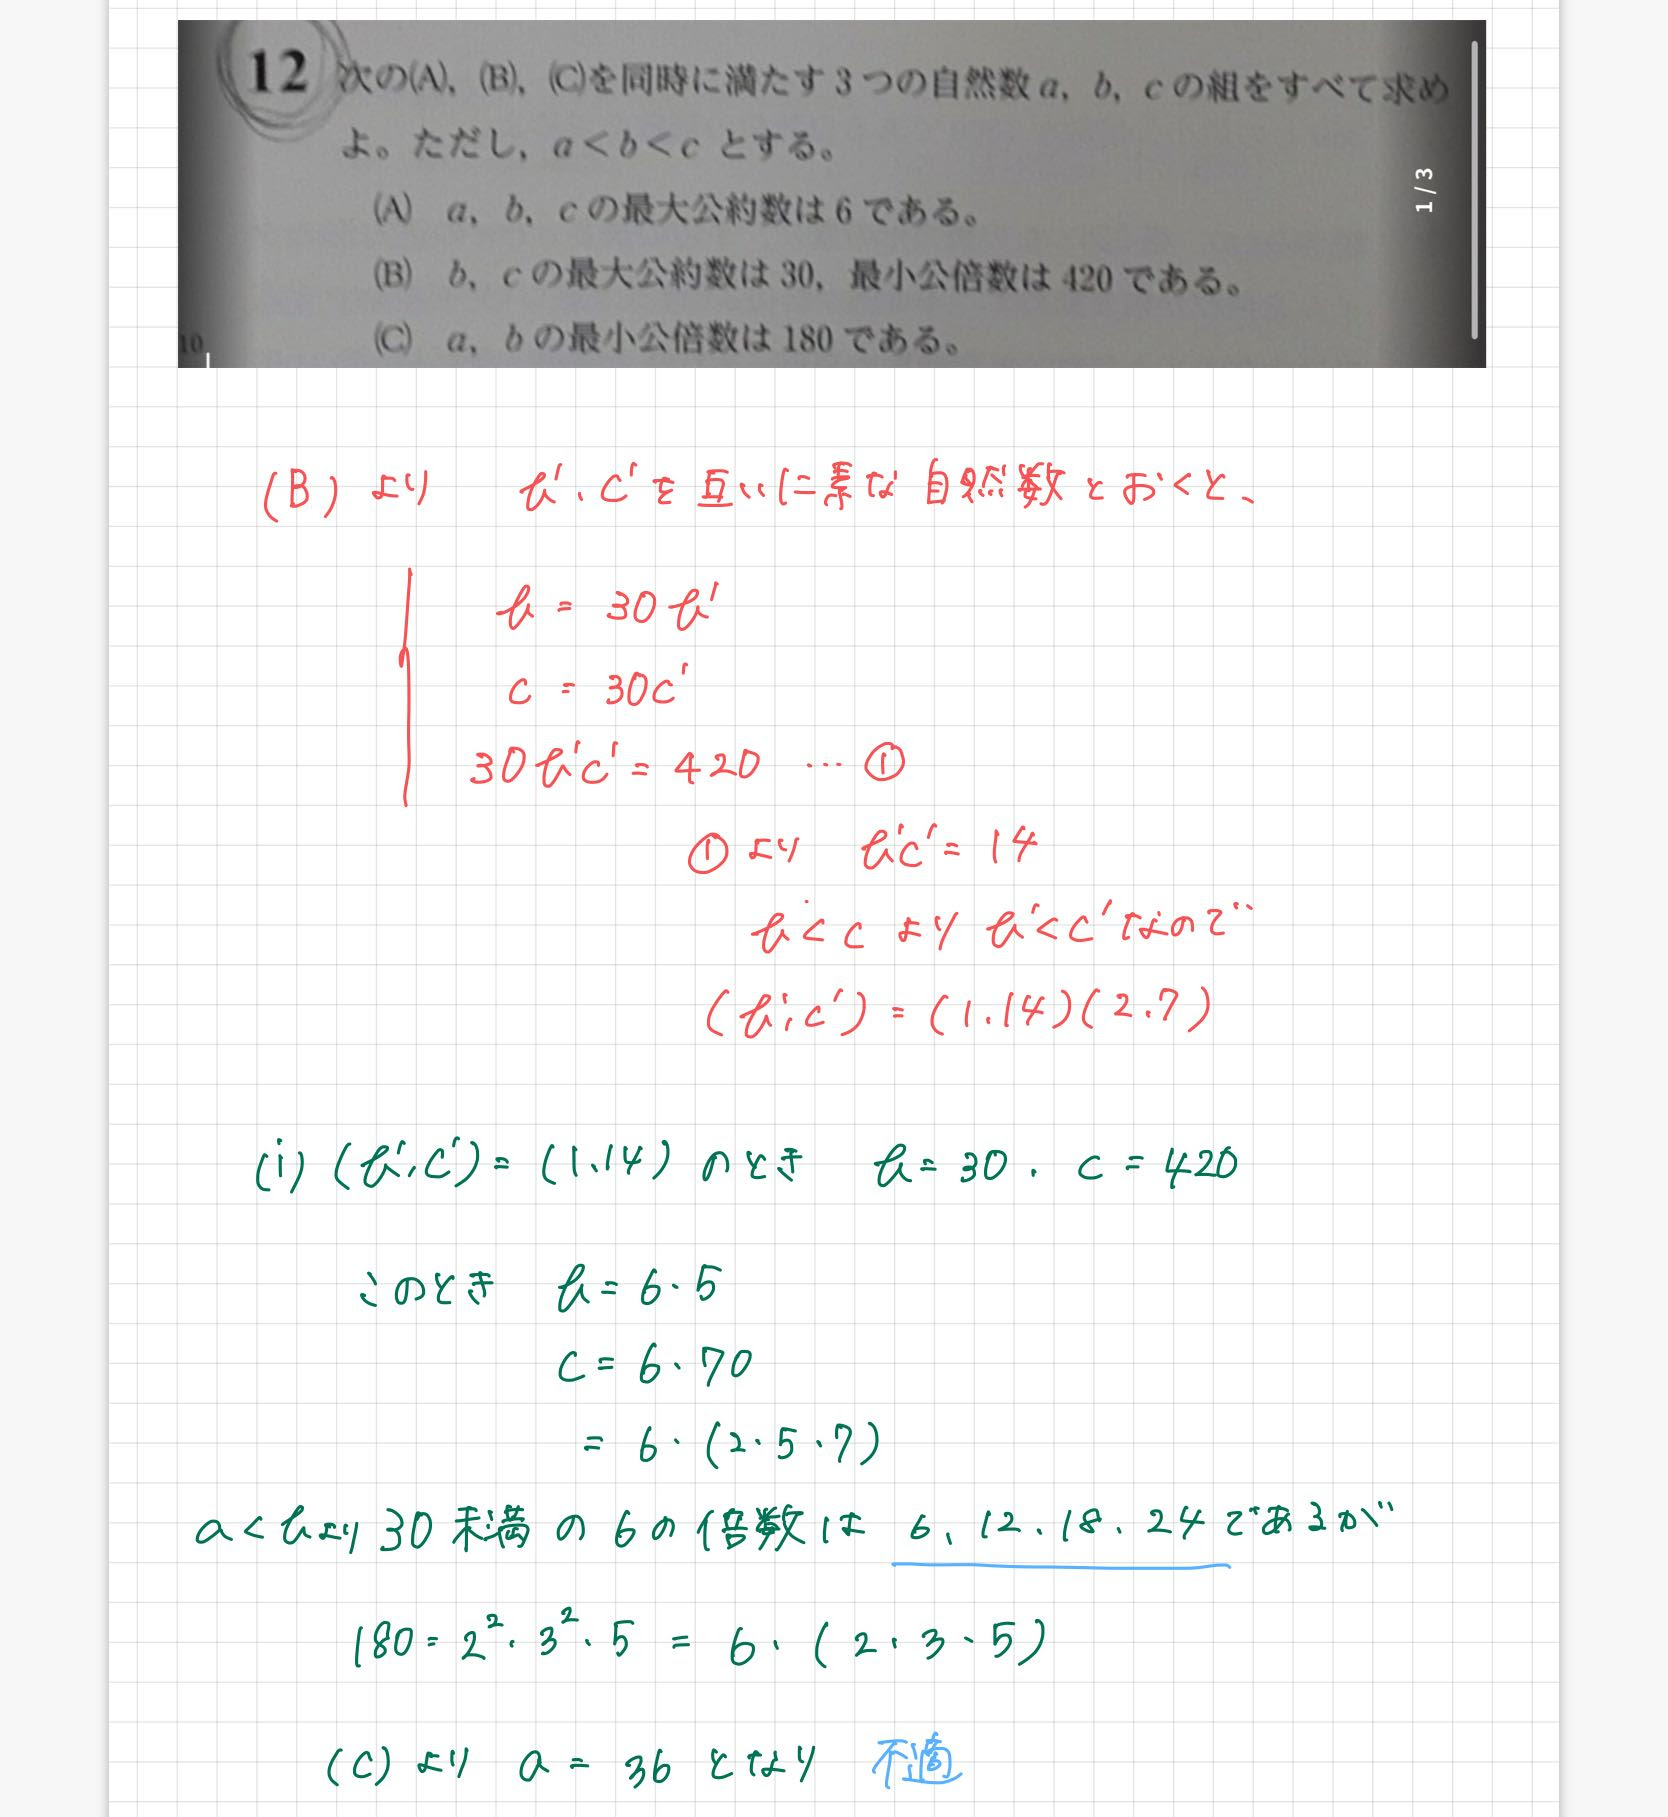 12 次の(A), (B), (C)を同時に満たす3つの自然数a, b, cの組をすべて求め
よ。ただし, a<b<c とする。
(A) a, b, cの最大公約数は6である。
(B) b, cの最大公約数は30, 最小公倍数は420である。
(C) a, bの最小公倍数は180である。
10
1/3
(B)より b'.c'を互いに素な自然数とおくと、
b = 30b'
c = 30c'
30b'c' = 420 … ①
①より b'c' = 14
b<c より b'<c'なので
(b',c') = (1.14)(2.7)
(i) (b',c') = (1.14) のとき b=30. c=420
このとき b = 6・5
c = 6・70
= 6・(2・5・7)
a<bより30未満の6の倍数は 6、12.18.24であるが
180 = 2²・3²・5 = 6・(2・3・5)
(C)より a = 36 となり 不適